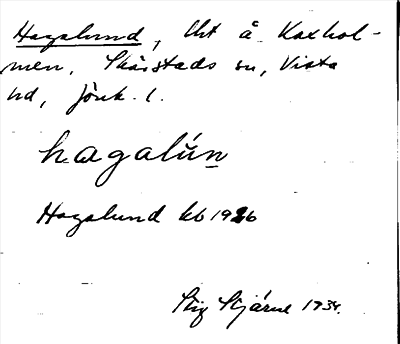 Hagalund, lht å Kaxhol-
men, Skärstads sn, Vista
hd, Jönk. l.
hagalún
Hagalund kb 1926
Stig Stjärne 1934.